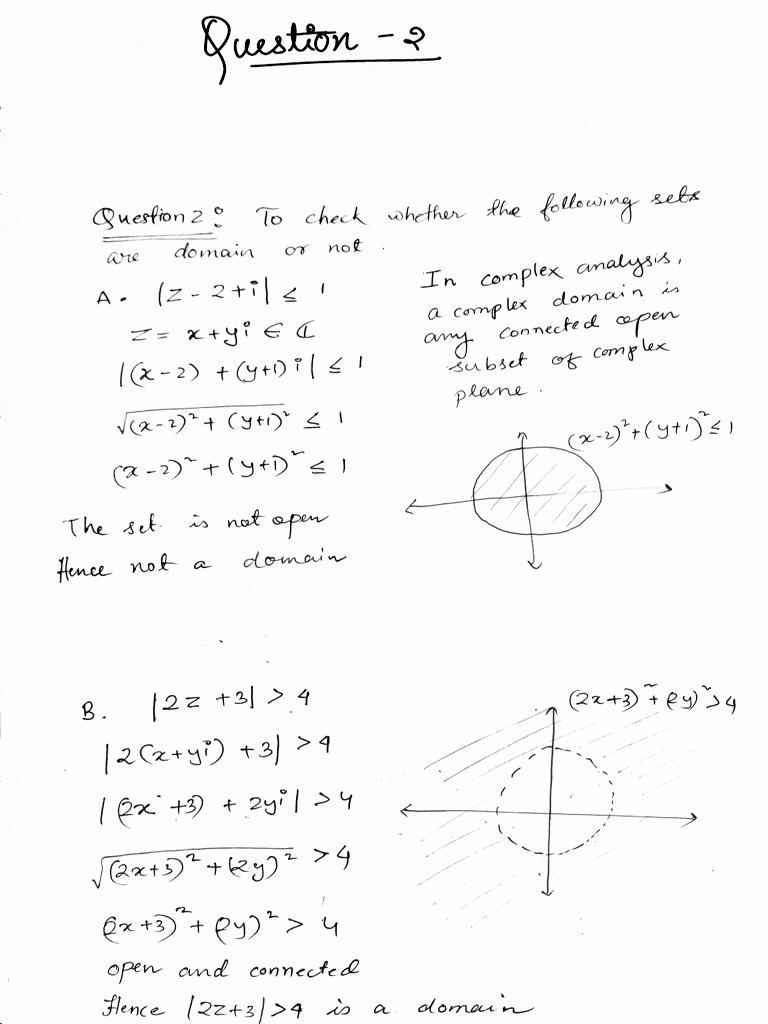 Question - 2
Question 2 : To check whether the following sets
are domain or not.
A. |z - 2 + i| ≤ 1
z = x + yi ∈ ℂ
|(x-2) + (y+1)i| ≤ 1
√(x-2)² + (y+1)² ≤ 1
(x-2)² + (y+1)² ≤ 1
The set is not open
Hence not a domain
In complex analysis,
a complex domain is
any connected open
subset of complex
plane.
(x-2)² + (y+1)² ≤ 1
B. |2z + 3| > 4
|2(x+yi) + 3| > 4
|(2x + 3) + 2yi| > 4
√(2x+3)² + (2y)² > 4
(2x+3)² + (2y)² > 4
open and connected
Hence |2z+3| > 4 is a domain
(2x+3)² + (2y)² > 4